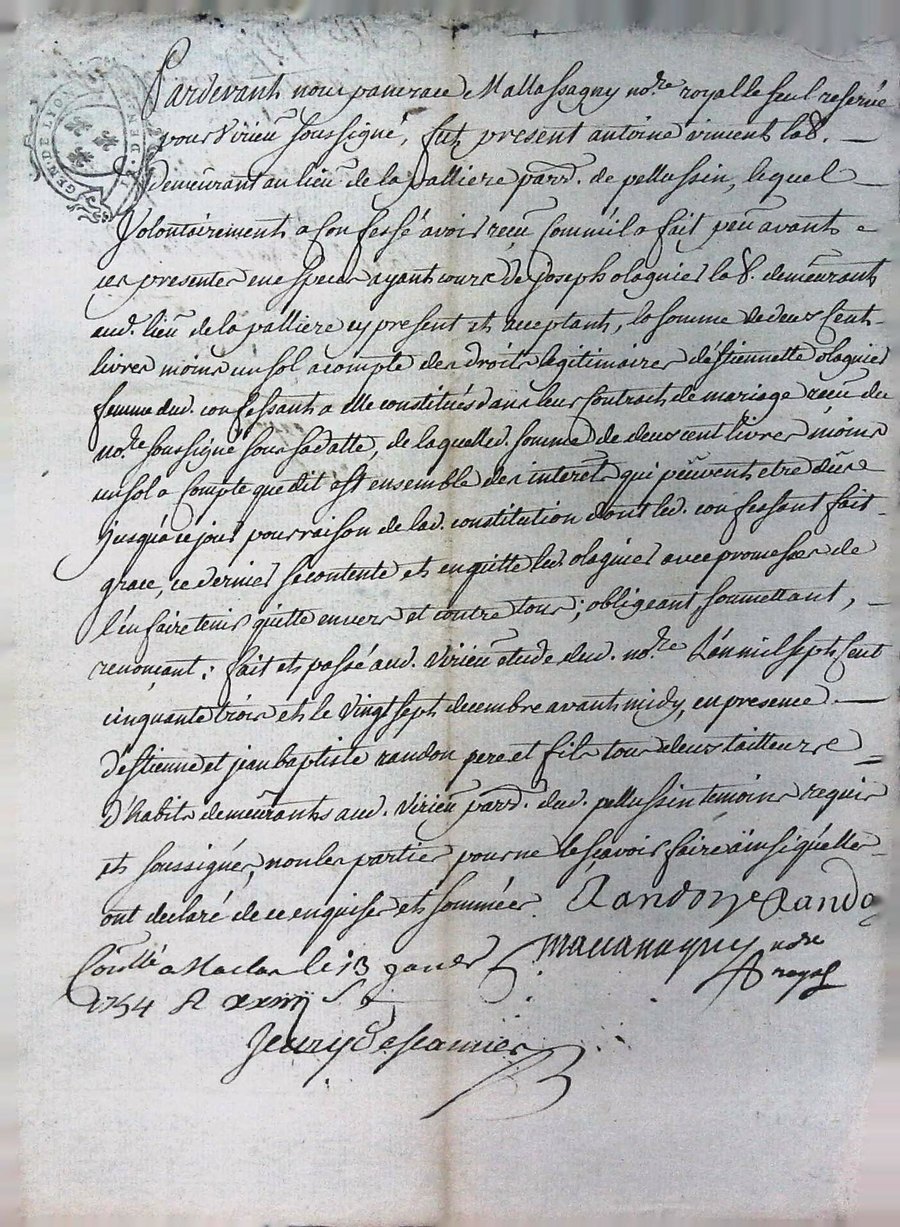 GEN DE LYON
Pardevant nous pancrace Mallassagny no.re royal le seul reservé
pour Virieu soussigné, fut present antoine viment lab.
Demeurant au lieu de la valliere parr. de pellussin, lequel
Volontairement a Confessé avoir reçu Comme il a fait peu avant
ces presentes en especes ayant cours de joseph olagnier lab. demeurant
aud. lieu de la valliere cy present et acceptant, la somme de deux Cent
livres moins un sol acompte des droits legitimaires d'Estiennette olagnier
femme dud. confessant a elle constitués dans leur Contract de mariage reçu du
no.re soussigné sous sa datte, de laquelle d. somme de deux cent livres moins
un sol a Compte que dit est ensemble des interets qui peuvent etre dus
jusqu'a ce jour pour raison de lad. constitution dont led. confessant fait
grace, ce dernier se contente et en quitte led olagnier avec promesses de
l'en faire tenir quitte envers et contre tous; obligeant soumettant,
renonçant; fait et passé aud. Virieu étude dud. no.re L'an mil sept Cent
cinquante trois et le Vingt sept decembre avant midy, en presence
d'Estienne et jean baptiste randon pere et fils tous deux tailleurs
D'habits demeurants aud. Virieu parr. dud. pellussin temoins requis
et soussignés, non les parties pour ne le sçavoir faire ainsi qu'elles
ont declaré de ce enquises et sommées. Randon Rando
Conllé a Maclas le 13 janer no.re
1754 R royal